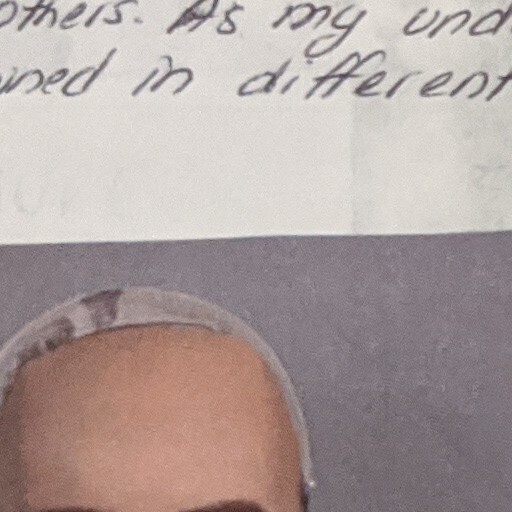 others. As my und
ined in different